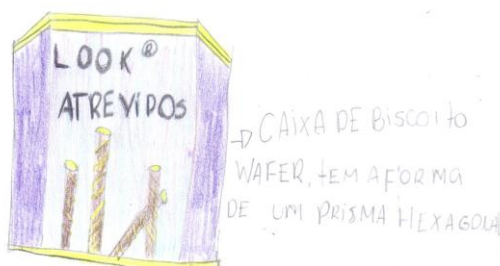 LOOK®
ATREVIDOS
→ CAIXA DE BISCOITO
WAFER, TEM A FORMA
DE UM PRISMA HEXAGONA